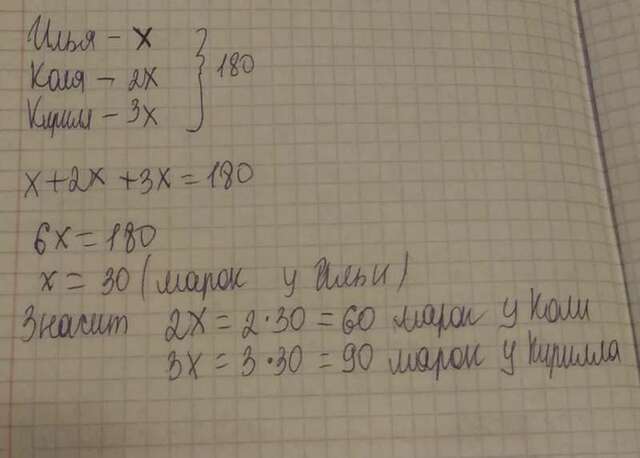 Илья – x
Коля – 2x } 180
Кирилл – 3x
x+2x+3x=180
6x=180
x=30 (марок у Ильи)
Значит 2x=2·30=60 марок у Коли
3x=3·30=90 марок у Кирилла